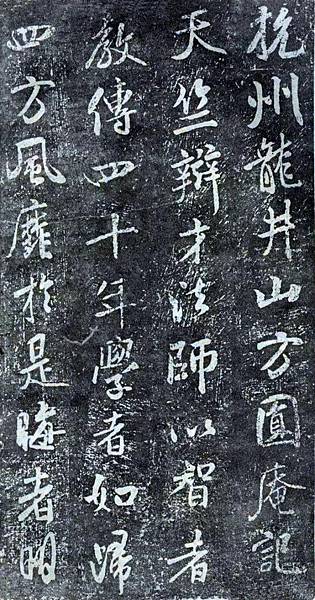 杭州龍井山方圓庵記
天竺辯才法師以智者
教傳四十年學者如歸
四方風靡於是晦者明